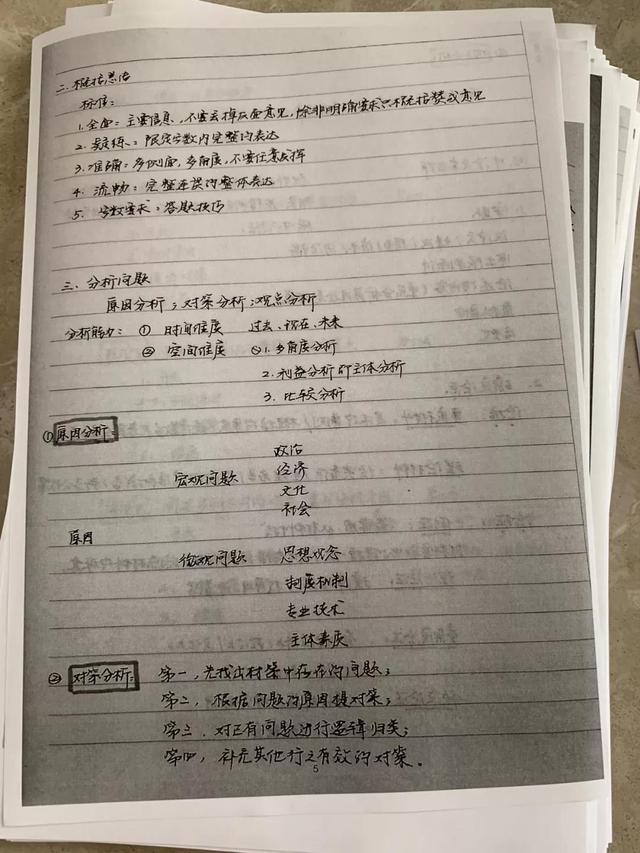 二. 概括总结
标准:
1. 全面: 主要信息, 不要去掉反面意见, 除非明确要求只概括赞成意见
2. 凝练: 限定字数内完整的表达
3. 准确: 多侧面, 多角度, 不要任意发挥
4. 流畅: 完整连贯的整体表达
5. 字数要求: 答题技巧
三. 分析问题
原因分析; 对策分析; 观点分析
分析能力: ① 时间维度 过去、现在、未来
② 空间维度 ②1. 多角度分析
2. 利益分析即主体分析
3. 比较分析
① 原因分析:
政治
宏观问题 经济
文化
社会
原因
微观问题 思想观念
制度机制
专业技术
主体素质
② 对策分析: 第一, 先找出材料中存在的问题;
第二, 根据问题的原因提对策;
第三, 对已有问题进行逻辑归类;
第四, 补充其他行之有效的对策。
5